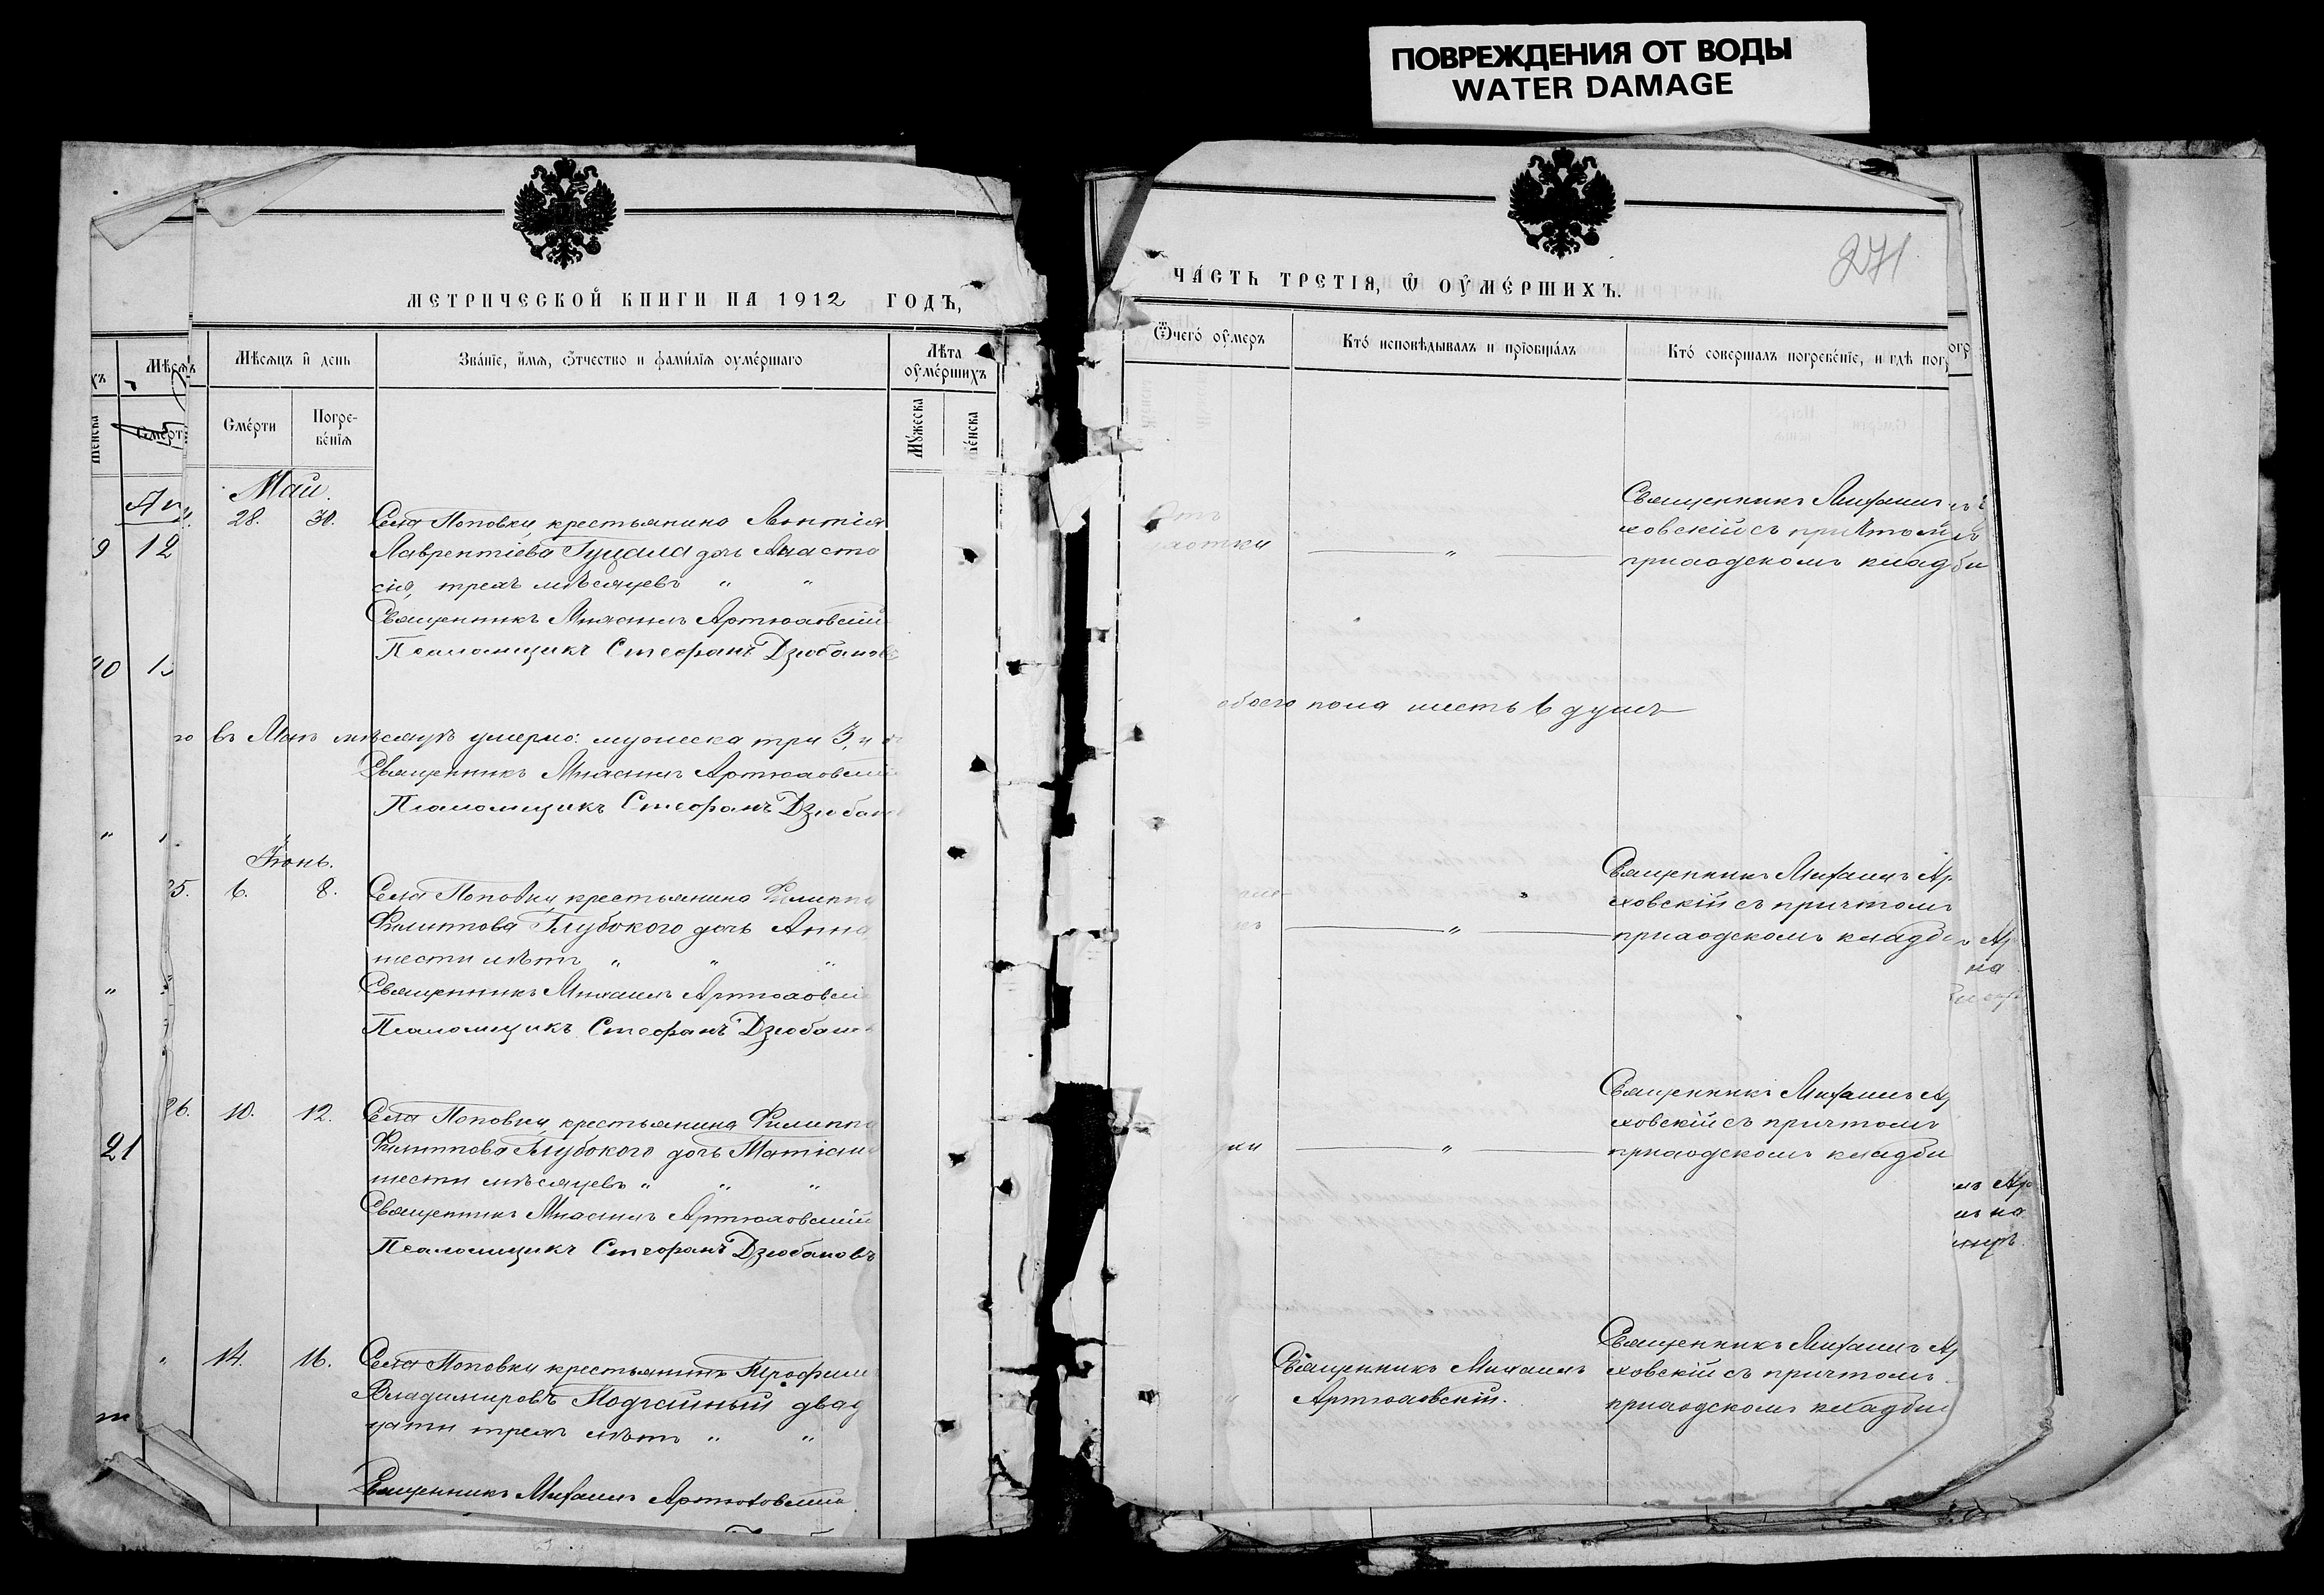 ПОВРЕЖДЕНИЯ ОТ ВОДЫ
WATER DAMAGE
МЕТРИЧЕСКОЙ КНИГИ НА 1912 ГОДЪ,
Мѣсяцъ и день
Зва́нїе, и҆́мѧ, ѻ҆́тчество и фами́лїѧ оуме́ршаго
Лѣта оуме́ршихъ
Сме́рти
Погре-
бе́нїѧ
Мꙋ́жеска
Же́нска
Май.
28. 30. Села Поповки, крестьянина Леонтія
Лаврентіева Гуцала дочь Анаста
сія, трехъ мѣсяцевъ " "
Священникъ Михаилъ Артюховскій
Псаломщикъ Стефанъ Дзюбановъ
въ Маѣ мѣсяцѣ умерло: мужеска три 3, и
Священникъ Михаилъ Артюховскій
Псаломщикъ Стефанъ Дзюбан
Іюнь.
25. 6. 8. Села Поповки, крестьянина Филиппа
Филиппова Глубокого дочь Анна
шести лѣтъ " " "
Священникъ Михаилъ Артюховскі
Псаломщикъ Стефанъ Дзюбан
26. 10. 12. Села Поповки, крестьянина Филиппа
Филиппова Глубокого дочь
шести мѣсяцевъ " " "
Священникъ Михаилъ Артюховскій
Псаломщикъ Стефанъ Дзюбановъ
" 14. 16. Села Поповки крестьянинъ Трофим
Владимировъ Подгайный двад
цати трехъ лѣтъ " "
Священникъ Михаилъ Артюховскій
19 12
20
21
ЧА́СТЬ ТРЕТІЯ, Ѡ҆ ОУМЕ́РШИХЪ.
271
Ѿчего́ оумеръ
Кто́ исповѣ́дывалъ и прїобща́лъ
Кто́ соверша́лъ погребе́нїе, и гдѣ пог
Отъ
Священникъ Михаилъ
ховскій съ причтомъ
"
приходскомъ кладби
обоего пола шесть 6 душъ
Священникъ Михаилъ Ар
ховскій съ причтомъ
"
приходскомъ кладби
Священникъ Михаилъ Ар
ховскій съ причтомъ
"
приходскомъ кладби
Священникъ Михаилъ
Артюховскій.
Священникъ Михаилъ Ар
ховскій съ причтомъ
приходскомъ кладби